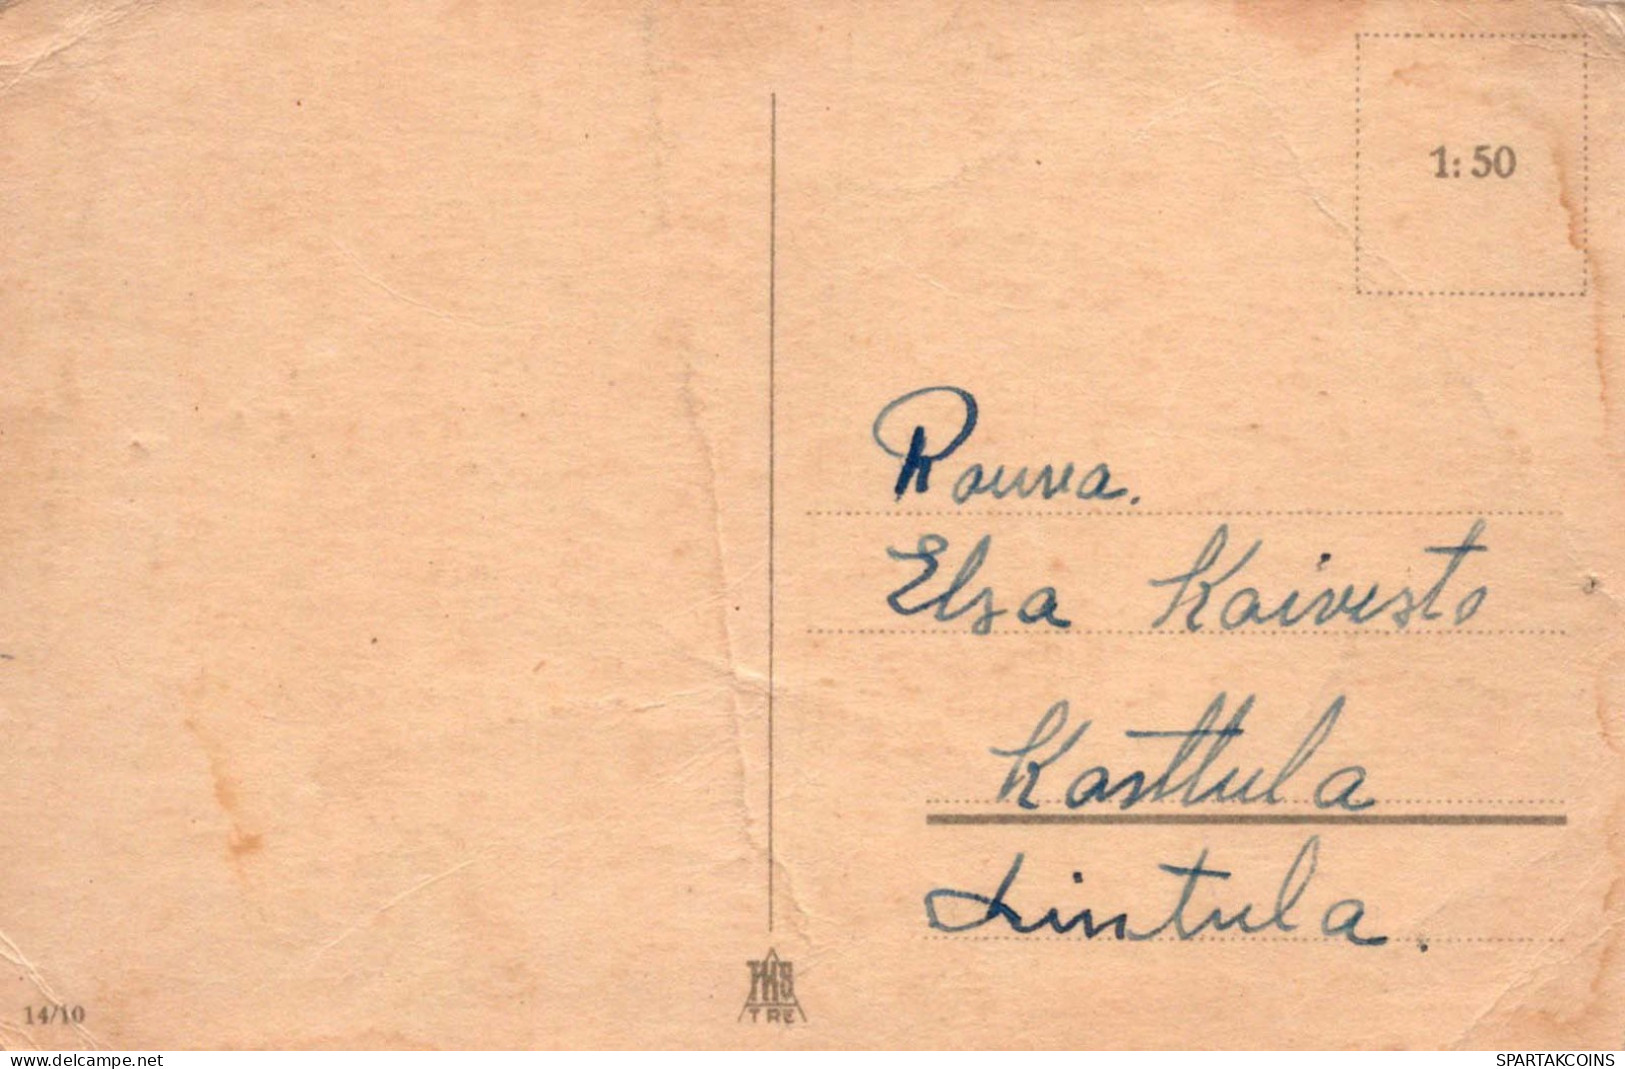 1: 50
Rouva.
Elsa Koivisto
Kasttula
Lintula.
THS
TRE
14/10
delcampe.net
SPARTAKCOINS